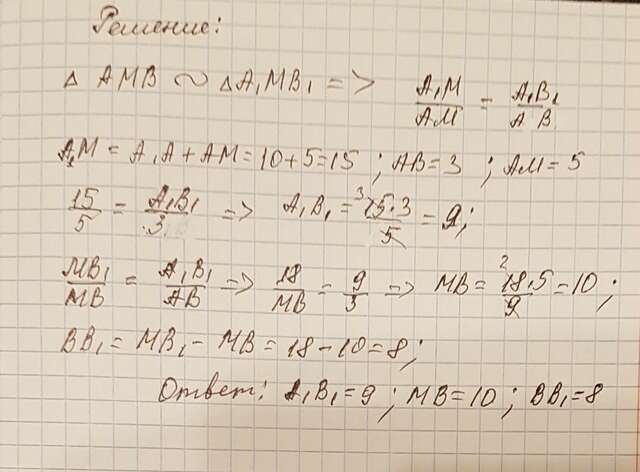 Решение:
Δ AMB ~ Δ A₁MB₁ => A₁M/AM = A₁B₁/AB
A₁M = A₁A + AM = 10 + 5 = 15 ; AB = 3 ; AM = 5
15/5 = A₁B₁/3 => A₁B₁ = ³15·3/5 = 9;
MB₁/MB = A₁B₁/AB => 18/MB = 9/5 => MB = ²18·5/9 = 10 ;
BB₁ = MB₁ - MB = 18 - 10 = 8 ;
Ответ: A₁B₁ = 9 ; MB = 10 ; BB₁ = 8